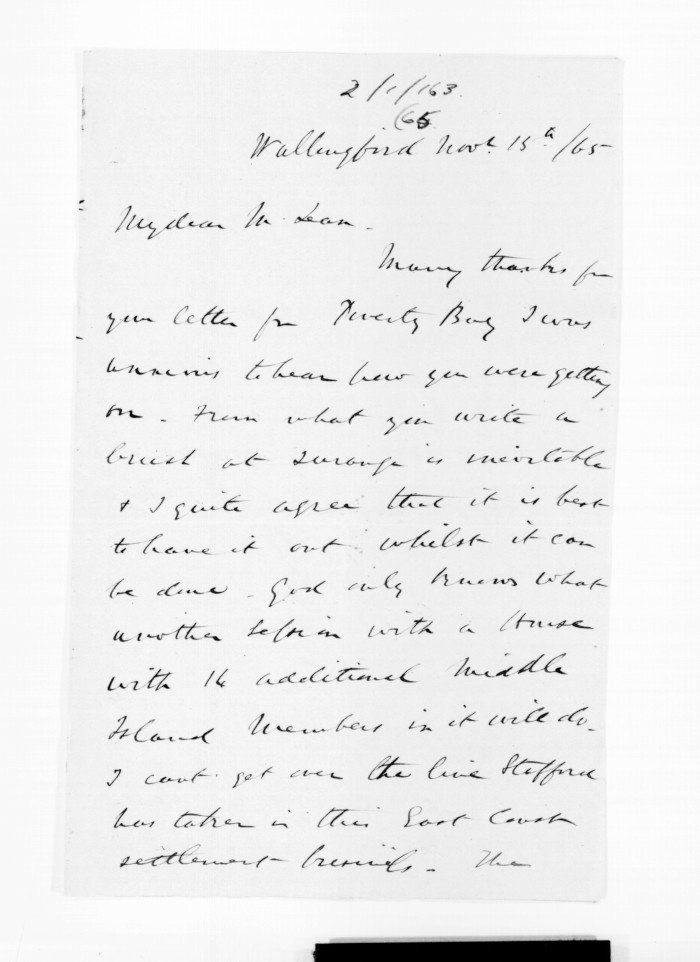 2/1/163.
(65
Wallingford Novr. 15th /65
My dear McLean -
Many thanks for
your letter from Poverty Bay I was
anxious to hear how you were getting
on - From what you write a
brush at Turanga is inevitable
& I quite agree that it is best
to have it out whilst it can
be done - God only knows what
another Session with a House
with 14 additional Middle
Island Members in it will do -
I cant get over the line Stafford
has taken in this East Coast
settlement business - The